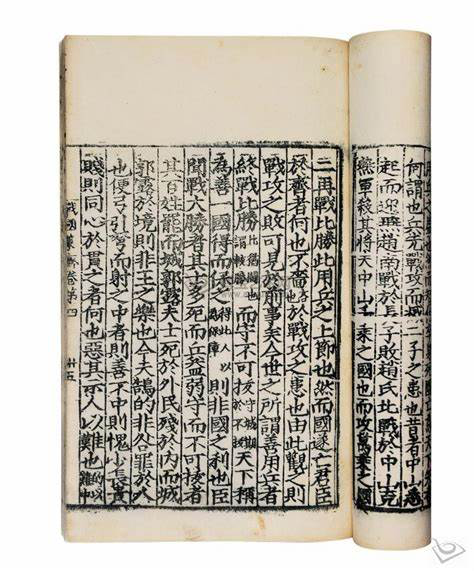 何謂也兵先戰攻而滅二子之患也昔者中山悉
起而迎燕趙南戰於長子敗趙氏北戰於中山克
燕軍殺其將夫中山千乘之國也而攻萬乘之國
二再戰比勝此用兵之上節也然而國遂亡君臣
於齊者何也不嗇於戰攻之患也由此觀之則
戰攻之敗可見於前事矣今世之所謂善用兵者
終戰比勝而守不可拔天下稱
為善一國得而保之得此以為保障則非國之利也臣
聞戰大勝者其士多死而兵益弱守而不可拔者
其百姓罷而城郭露夫士死於外民殘於內而城
郭露於境則非王之樂也今夫鵠的非咎罪於人
也便弓引弩而射之中者則善不中則愧少長貴
賤則同心於貫之者何也惡其示人以難也
戰國策卷第四
廿五